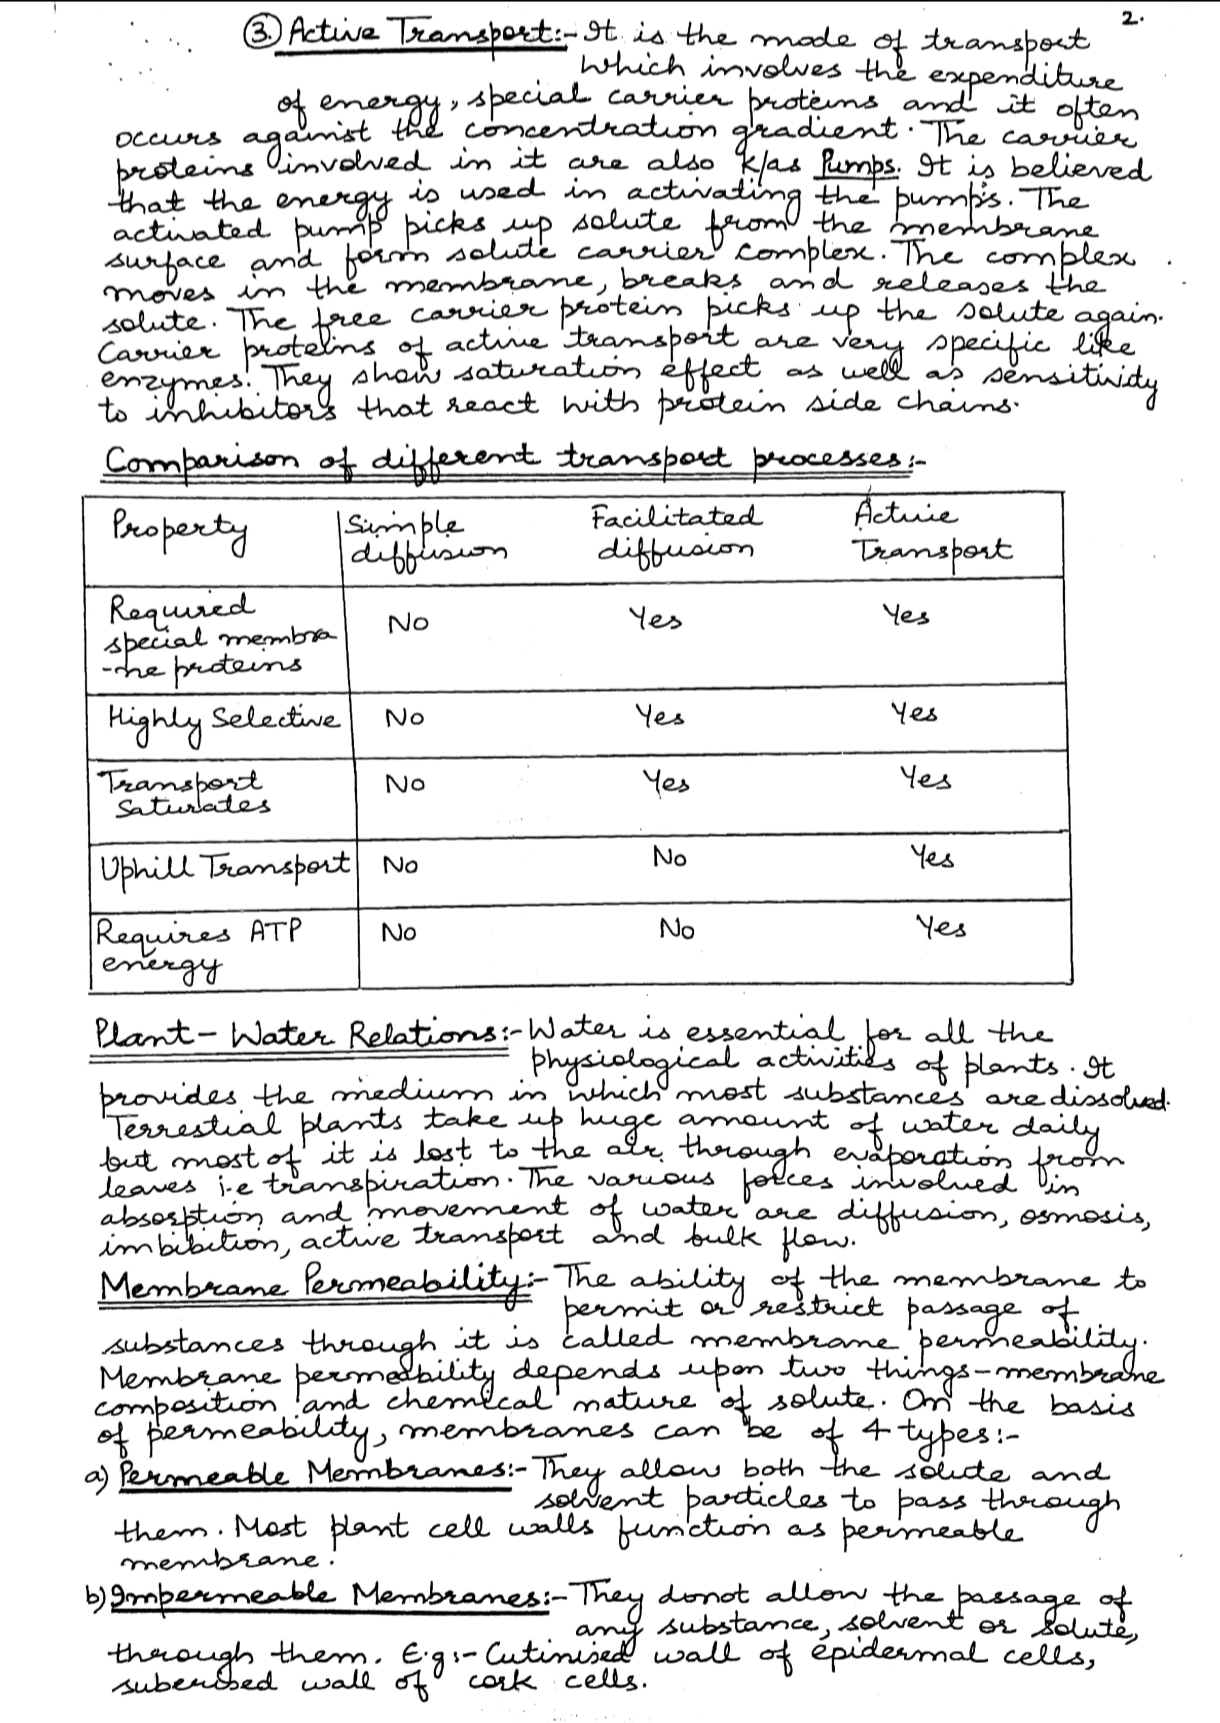 2.
③ Active Transport:- It is the mode of transport
which involves the expenditure
of energy, special carrier proteins and it often
occurs against the concentration gradient. The carrier
proteins involved in it are also k/as Pumps. It is believed
that the energy is used in activating the pumps. The
activated pump picks up solute from the membrane
surface and form solute carrier complex. The complex
moves in the membrane, breaks and releases the
solute. The free carrier protein picks up the solute again.
Carrier proteins of active transport are very specific like
enzymes. They show saturation effect as well as sensitividy
to inhibitors that react with protein side chains.
Comparison of different transport processes:-
Property | Simple diffusion | Facilitated diffusion | Active Transport
Required special membra-ne proteins | No | Yes | Yes
Highly Selective | No | Yes | Yes
Transport Saturates | No | Yes | Yes
Uphill Transport | No | No | Yes
Requires ATP energy | No | No | Yes
Plant-Water Relations:- Water is essential for all the
physiological activities of plants. It
provides the medium in which most substances are dissolved.
Terrestial plants take up huge amount of water daily
but most of it is lost to the air through evaporation from
leaves i.e transpiration. The various forces involved in
absorption and movement of water are diffusion, osmosis,
imbibition, active transport and bulk flow.
Membrane Permeability:- The ability of the membrane to
permit or restrict passage of
substances through it is called membrane permeability.
Membrane permeability depends upon two things-membrane
composition and chemical nature of solute. On the basis
of permeability, membranes can be of 4 types:-
a) Permeable Membranes:- They allow both the solute and
solvent particles to pass through
them. Most plant cell walls function as permeable
membrane.
b) Impermeable Membranes:- They donot allow the passage of
any substance, solvent or solute,
through them. E.g:- Cutinised wall of epidermal cells,
suberised wall of cork cells.